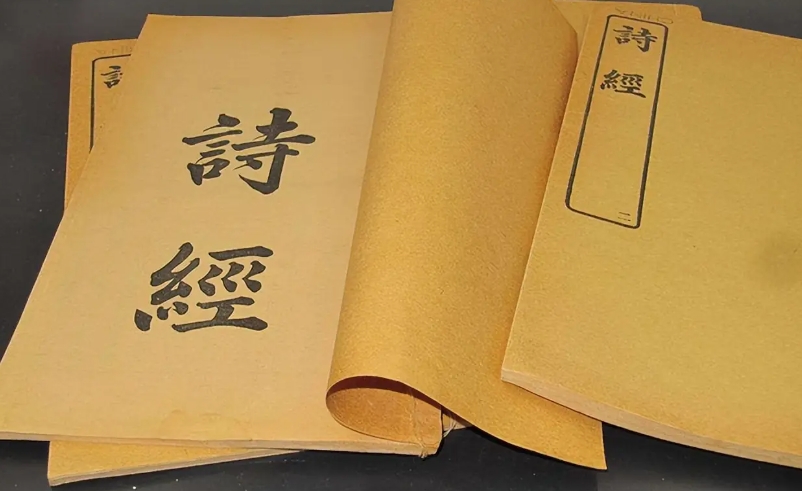 詩經
詩經
二